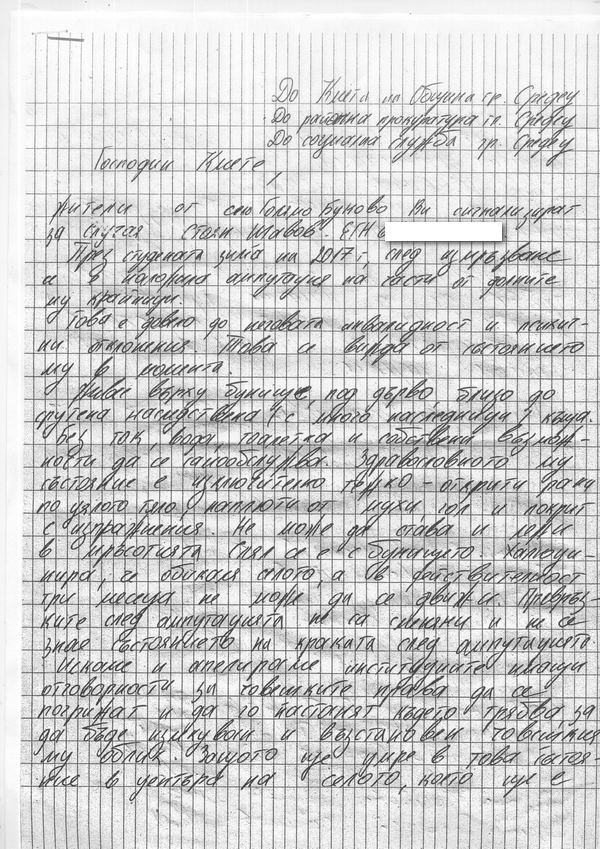 До Кмета на Община гр. Средец
До районна прокуратура гр. Средец
До социална служба гр. Средец
Господин Кмете,
жители от село Голямо Буково Ви сигнализират
за случая "Стоян Шавов". ЕГН
През студената зима на 2017 г, след измръзване
се е наложила ампутация на части от долните
му крайници.
Това е довело до неговата инвалидност и психич-
ни отклонения. Това се вижда от състоянието
му в момента.
Живее върху бунище, под дърво, близо до
срутена наследствена /с много наследници/ къща.
Без ток, вода, тоалетка и собствена възмож-
ности да се самообслужва. Здравословното му
състояние е изключително тежко - открити рани
по цялото тяло наплюти от мухи, гол и покрит
с изпражнения. Не може да става и лежи
в мръсотията. Слял се е с бунището. Халюци-
нира, че обикаля селото, а в действителност
три месеца не може да се движи. Превръз-
ките след ампутацията не са сменяни и не се
знае състоянието на краката след ампутацията.
Искаме и апелираме институциите имащи
отговорности за човешките права да се
погрижат и да го настанят където трябва за
да бъде излекуван и възстановен човешкия
му облик. Защото ще умре в това състоя-
ние в центъра на селото, което ще е